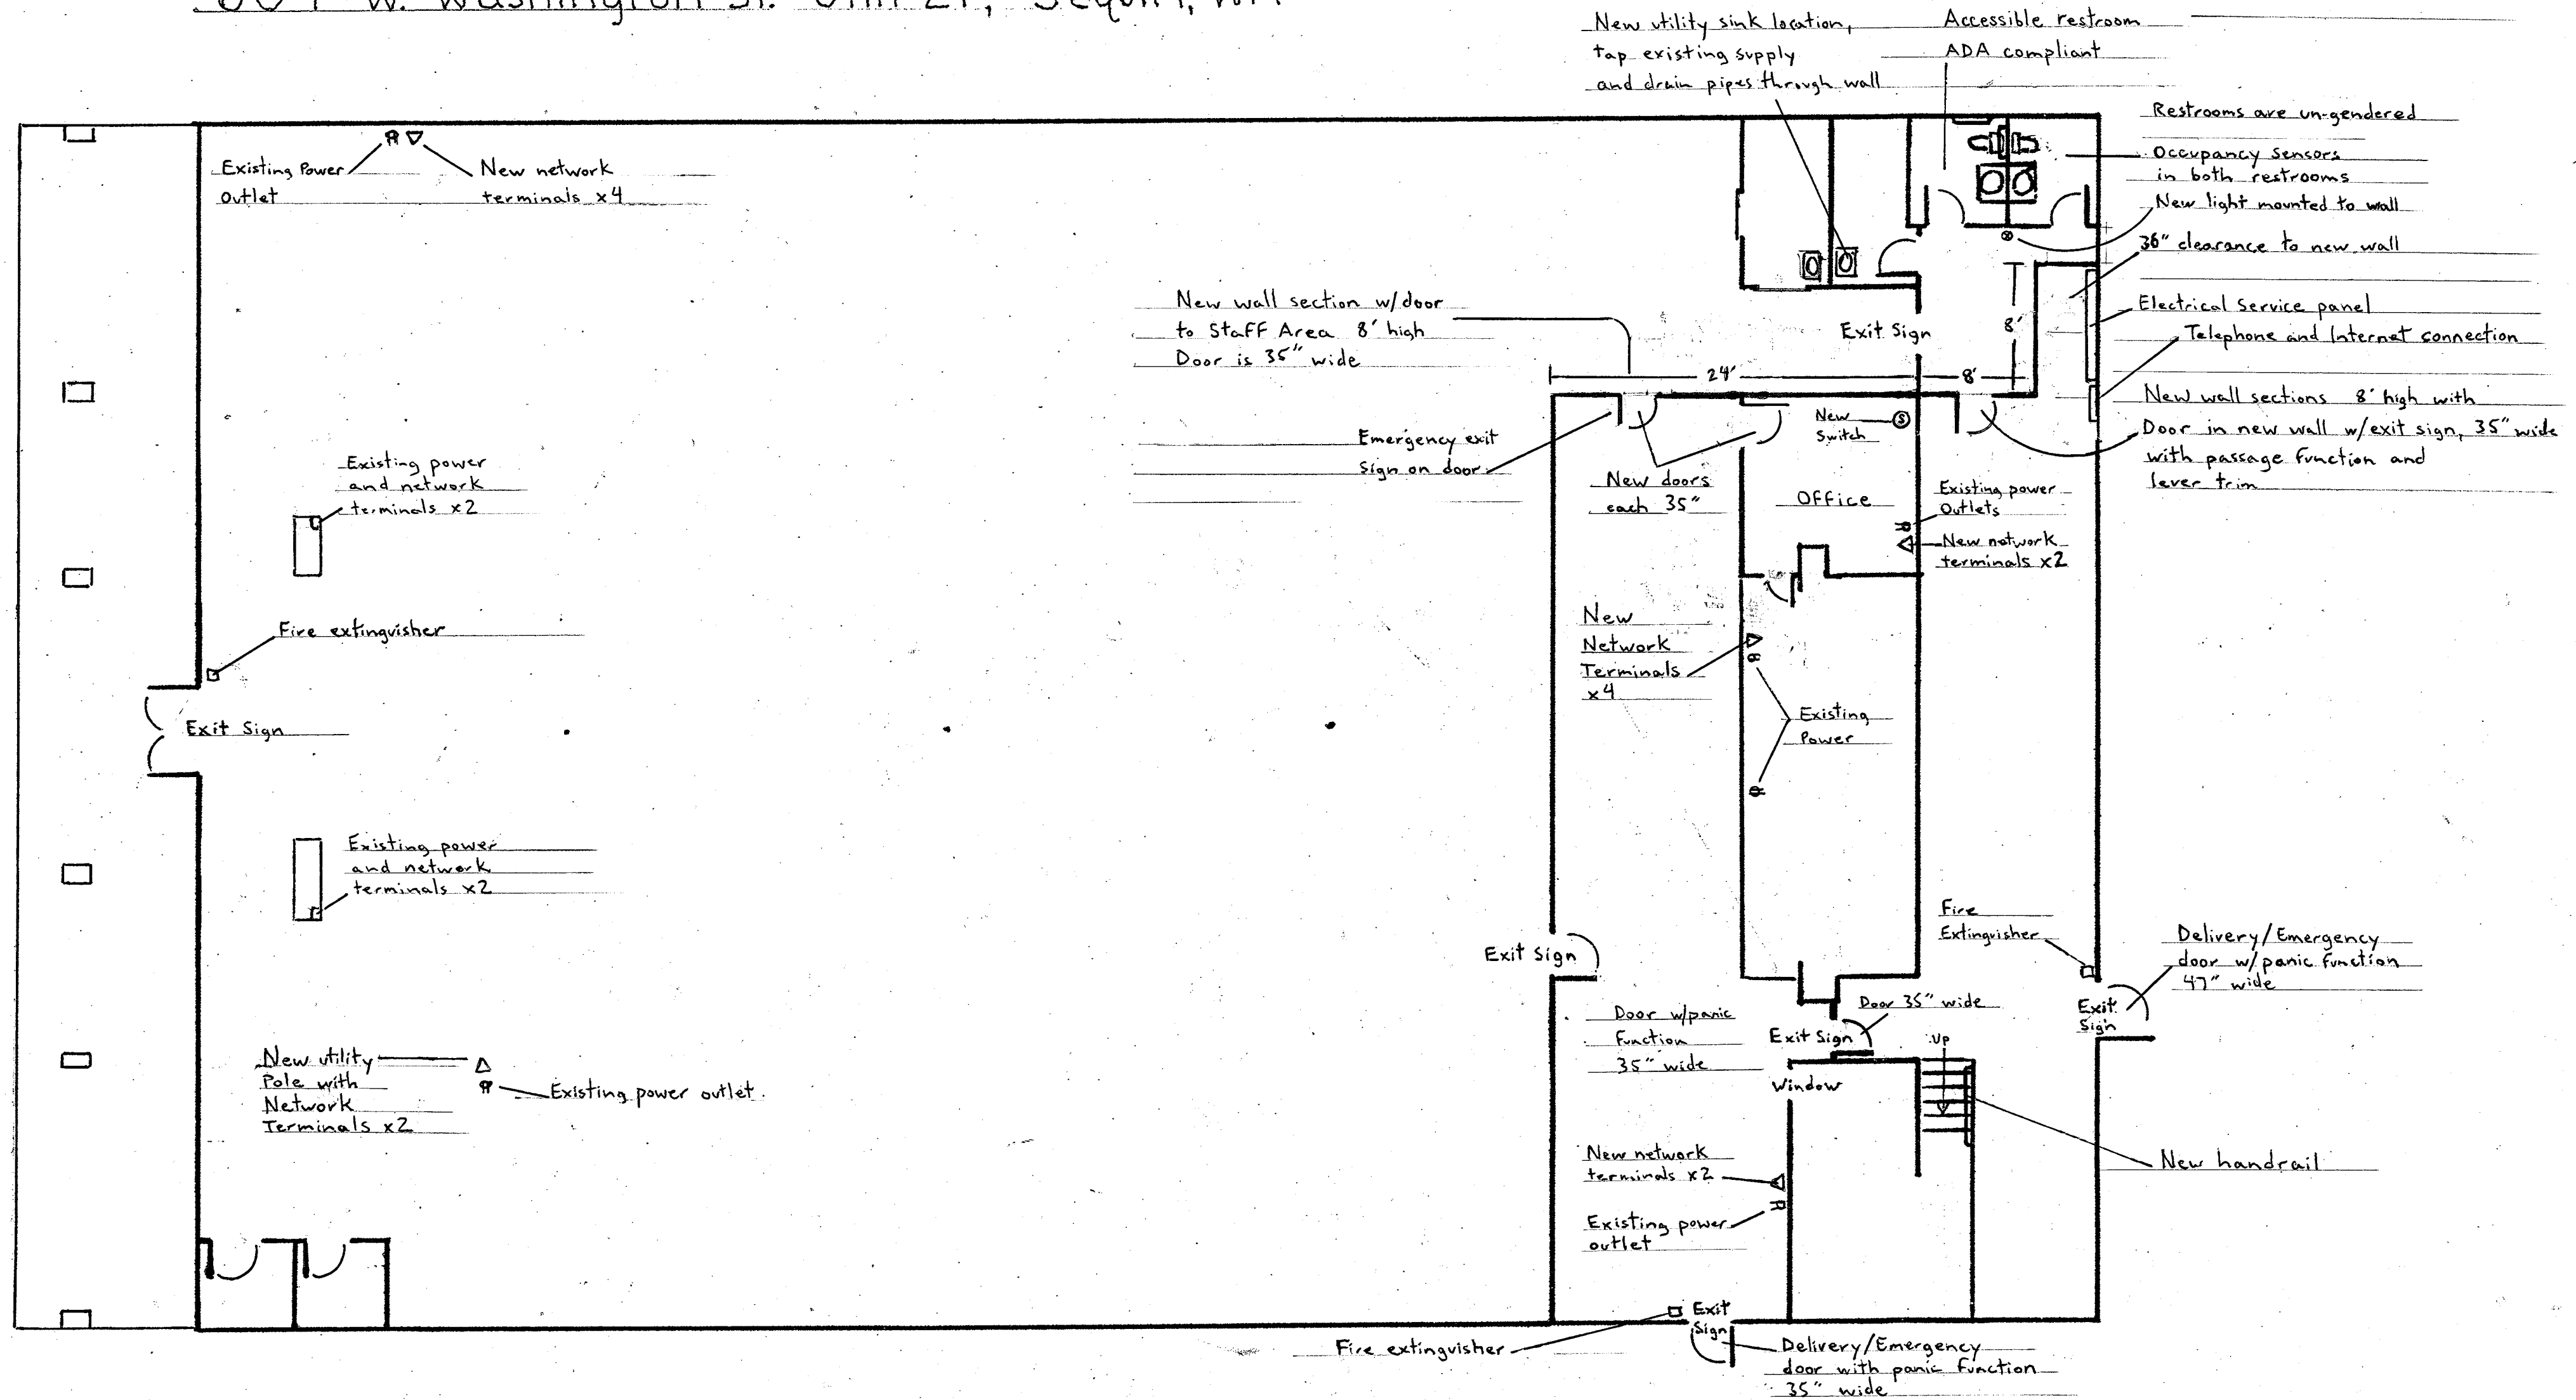 W. Washington St. Unit 21, Sequim, WA
New utility sink location,
tap existing supply
and drain pipes through wall
Accessible restroom
ADA compliant
Restrooms are un-gendered
Occupancy sensors
in both restrooms
New light mounted to wall
36" clearance to new wall
Electrical service panel
Telephone and Internet connection
New wall sections 8' high with
Door in new wall w/exit sign, 35" wide
with passage function and
lever trim
Existing Power
Outlet
New network
terminals x4
New wall section w/door
to Staff Area 8' high
Door is 35" wide
Exit Sign
8'
24'
8'
Emergency exit
sign on door
New
Switch
S
New doors
each 35"
Office
Existing power
Outlets
New network
terminals x2
Existing power
and network
terminals x2
Fire extinguisher
Exit Sign
New
Network
Terminals
x4
Existing
Power
Existing power
and network
terminals x2
Exit Sign
Fire
Extinguisher
Delivery/Emergency
door w/panic function
47" wide
Exit
Sign
Door w/panic
Function
35" wide
Door 35" wide
Exit Sign
Up
Window
New utility
Pole with
Network
Terminals x2
Existing power outlet.
New handrail
New network
terminals x2
Existing power
outlet
Exit
Sign
Fire extinguisher
Delivery/Emergency
door with panic function
35" wide